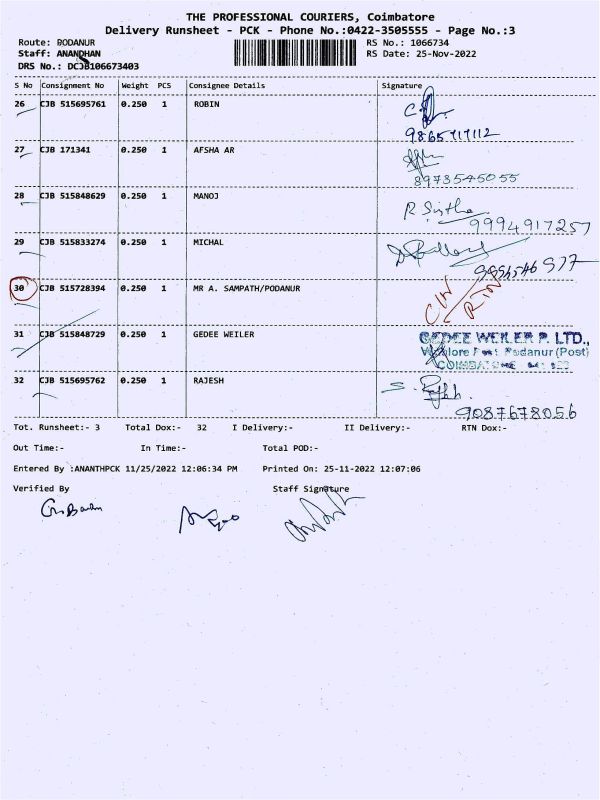 THE PROFESSIONAL COURIERS, Coimbatore
Delivery Runsheet - PCK - Phone No.:0422-3505555 - Page No.:3
Route: PODANUR
RS No.: 1066734
Staff: ANANDHAN
RS Date: 25-Nov-2022
DRS No.: DCJB106673403
S No Consignment No Weight PCS Consignee Details Signature
26 CJB 515695761 0.250 1 ROBIN
9865717112
27 CJB 171341 0.250 1 AFSHA AR
8973545055
28 CJB 515848629 0.250 1 MANOJ R
9994917257
29 CJB 515833274 0.250 1 MICHAL
30 CJB 515728394 0.250 1 MR A. SAMPATH/PODANUR
31 CJB 515848729 0.250 1 GEDEE WEILER GEDEE WEILER P. LTD.,
Podanur (Post)
32 CJB 515695762 0.250 1 RAJESH S.
9087678056
Tot. Runsheet:- 3 Total Dox:- 32 I Delivery:- II Delivery:- RTN Dox:-
Out Time:- In Time:- Total POD:-
Entered By :ANANTHPCK 11/25/2022 12:06:34 PM Printed On: 25-11-2022 12:07:06
Verified By Staff Signature